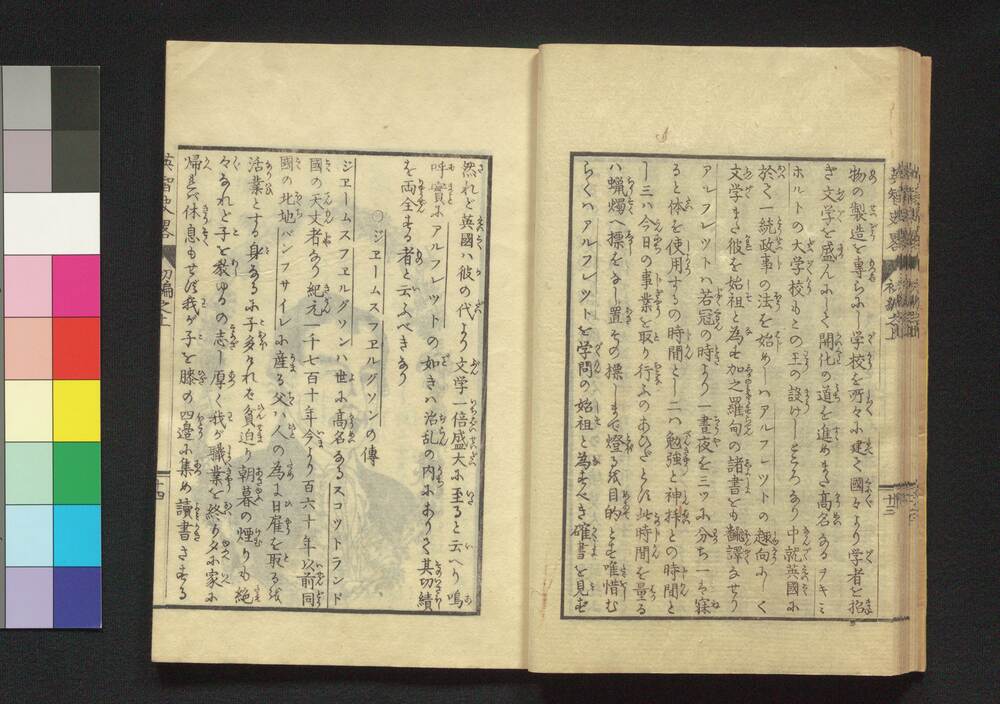 物の製造を専らにし学校を所々に建て國々より学者を招
き文学を盛んにして開化の道を進めまた高名なるヲキス
ホルトの大学校もこの王の設けしところなり中就英國に
於て一統政事の法を始めしハアルフレットの趣向にして
文学また彼を始祖と為せ加之羅甸の諸書をも翻譯なせり
アルフレットハ若冠の時より一晝夜を三ツに分ち一ハ寐
ると体を使用するの時間とし二ハ勉強と神拝との時間と
し三ハ今日の事業を取り行ふのあひだとし此時間を量る
ハ蝋燭へ標をなし置その標しまで燈るを目的とせ唯惜む
らくハアルフレットを学問の始祖と為すべき確書を見ず
然れど英國ハ彼の代より文学一倍盛大に至ると云へり嗚
呼實にアルフレットの如きハ治乱の内にありて其切績
を両全する者と云ふべきなり
○ジエームスフエルグソンの傳
ジエームスフエルグソンハ世に高名なるスコットランド
國の天文者なり紀元一千七百十年今より百六十年以前同
國の北地バンフサイレに産る父ハ人の為よ日雇を取るを
活業とする身なるに子多ければ貧迫り朝暮の煙りも絶
々なれど子を教ゆるの志し厚く我が職業を終り夕に家に
帰れバ休息もせず我が子を膝の四邊に集め讀書きする
英智史畧
初編之上
十四
十三